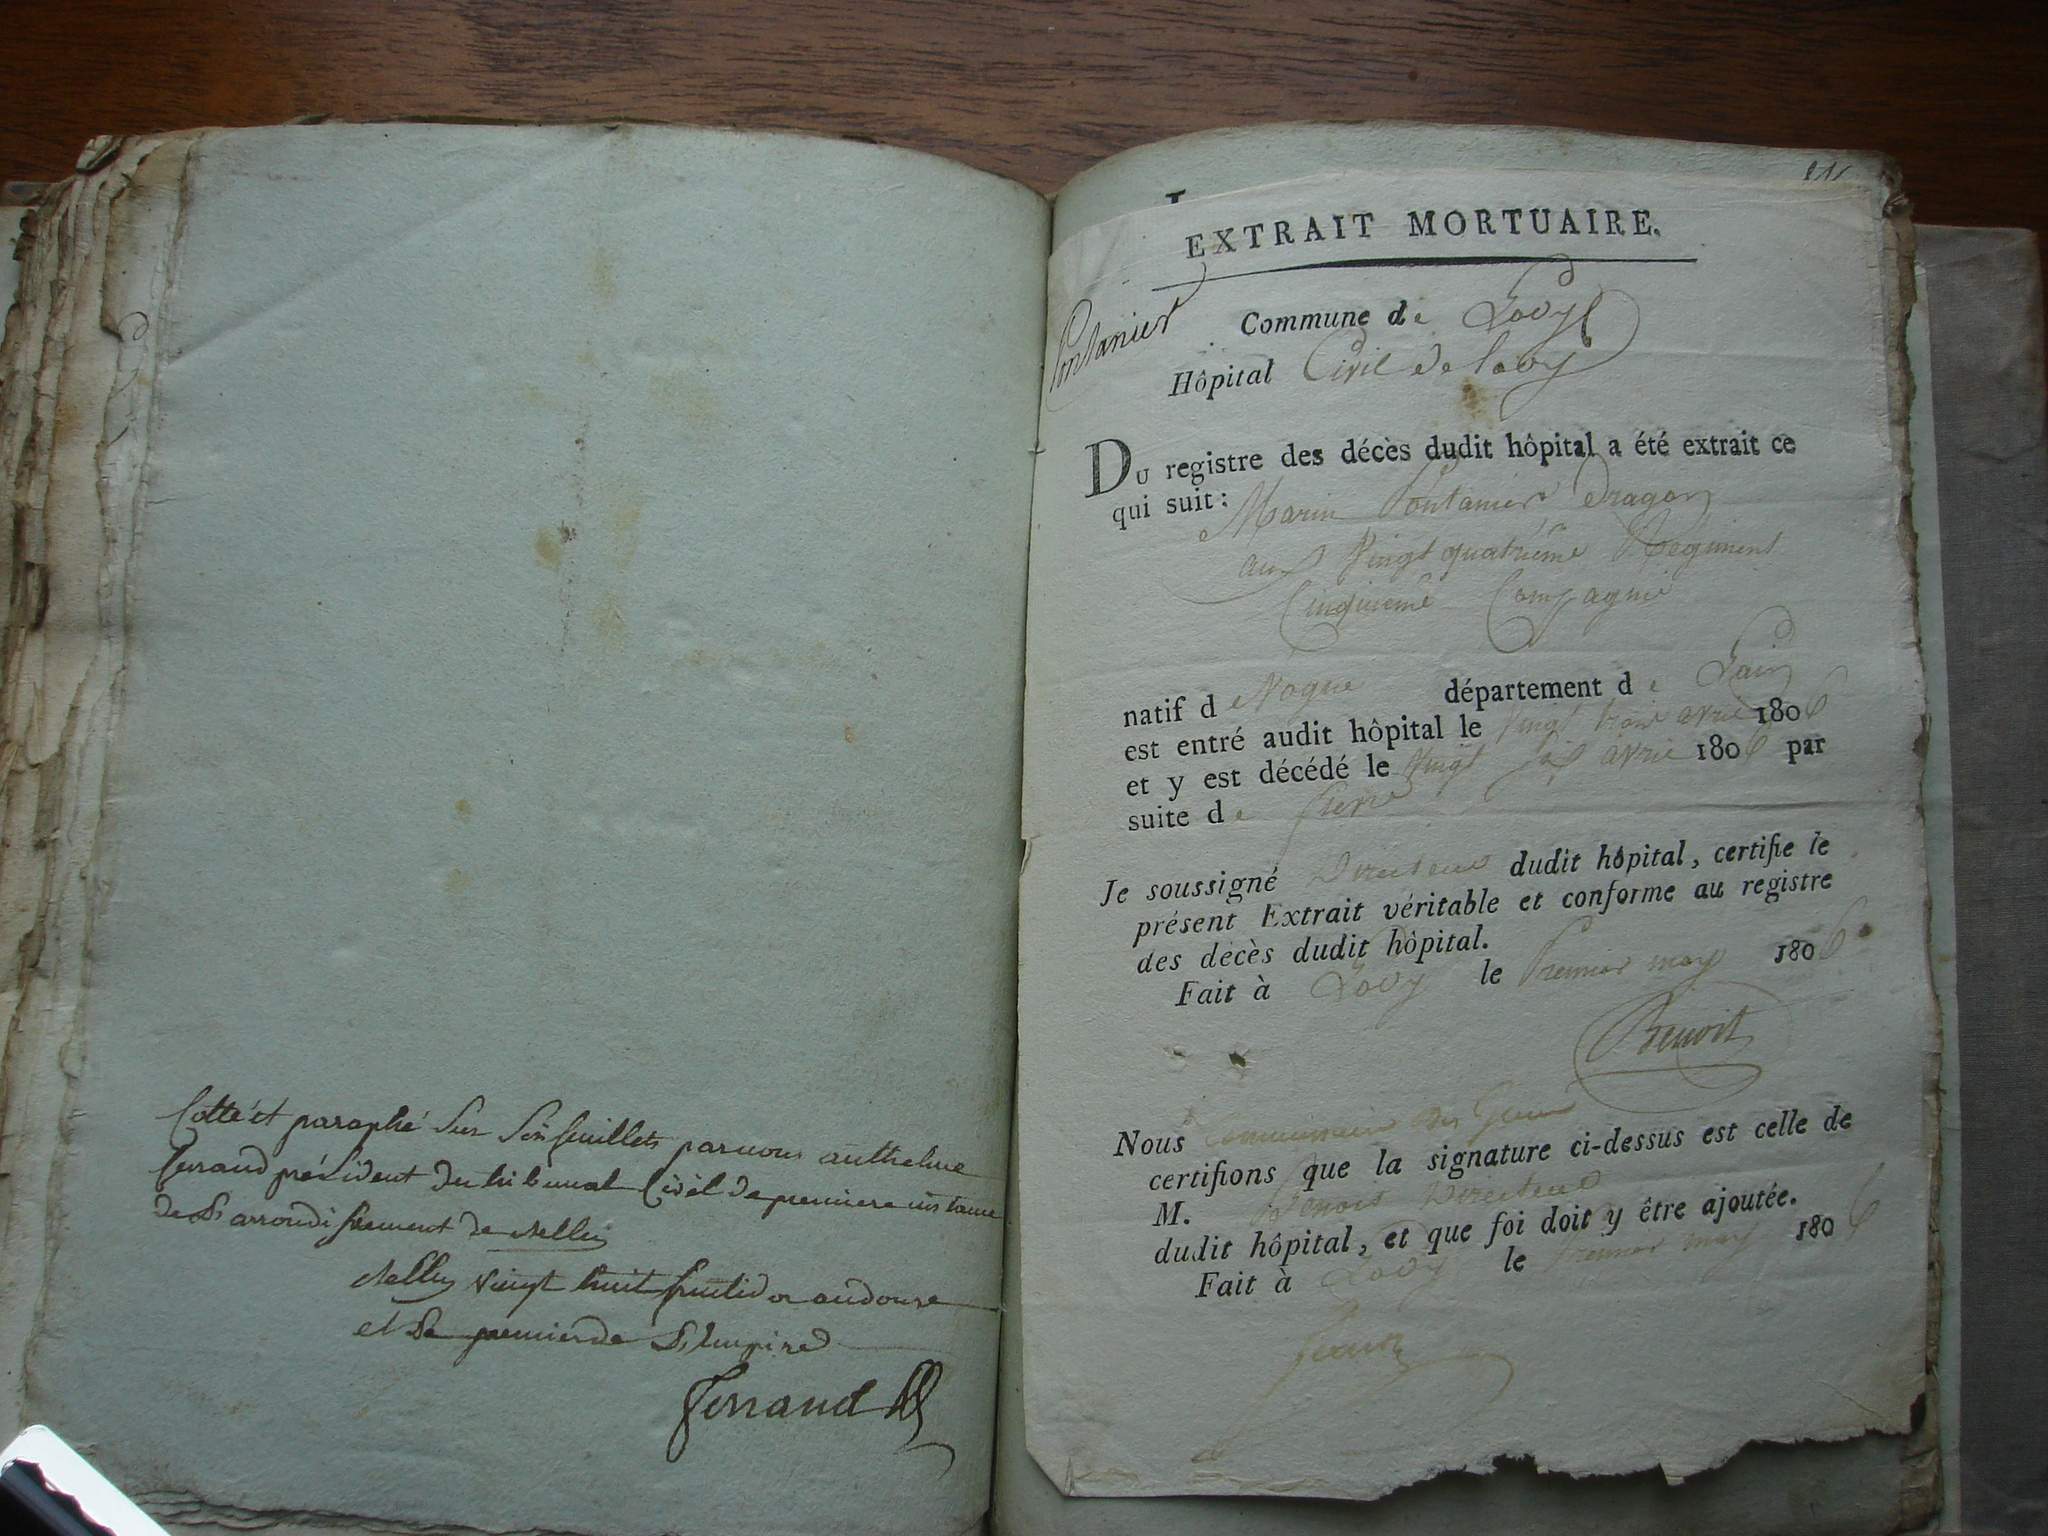 Cotté et paraphé sur six feuillets par nous anthelme
ferrand président du tribunal Civil de premiere instance
de L'arrondissement de Belley
Belley vingt huit fructidor an douze
et Le premier de L'Empire
ferrand
EXTRAIT MORTUAIRE.
Pontanier
Commune de Lody
Hôpital Civil de Lody
DU registre des décès dudit hôpital a été extrait ce
qui suit: Marin Pontanier Dragon
au Vingt quatrieme Regiment
Cinquieme Compagnie
natif de Nogue département de Lain
est entré audit hôpital le Vingt trois avril 1806
et y est décédé le Vingt six avril 1806 par
suite de fievre
Je soussigné Directeur dudit hôpital, certifie le
présent Extrait véritable et conforme au registre
des décès dudit hôpital.
Fait à Lody le Premier may 1806
Benoit
Nous Commissaire des Guerre
certifions que la signature ci-dessus est celle de
M. Benoit Directeur
dudit hôpital, et que foi doit y être ajoutée.
Fait à Lody le Premier may 1806